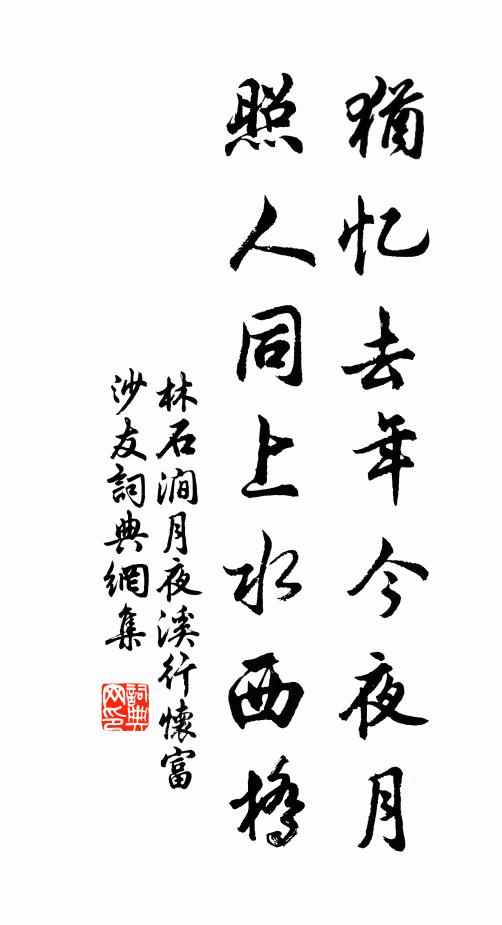 猶忆去年今夜月
照人同上水西橋
林石澗月夜溪行懷富
沙友詞典網集
詞典网印